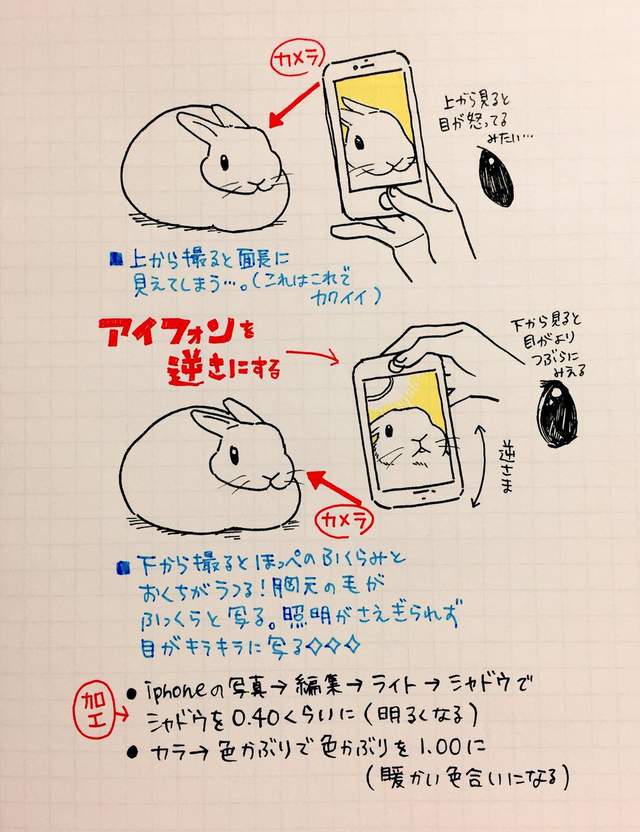 カメラ
上から見ると
目が怒ってる
みたい…
■上から撮ると面長に
見えてしまう…。(これはこれで
カワイイ)
アイフォンを
逆さにする
下から見ると
目がより
つぶらに
みえる
逆さま
カメラ
■下から撮るとほっぺのふくらみと
おくちがうつる!胸元の毛が
ふっくらと写る。照明がさえぎられず
目がキラキラに写る✧✧✧
加工→
●iphoneの写真→編集→ライト→シャドウで
シャドウを0.40くらいに(明るくなる)
●カラー→色かぶりで色かぶりを1.00に
(暖かい色合いになる)